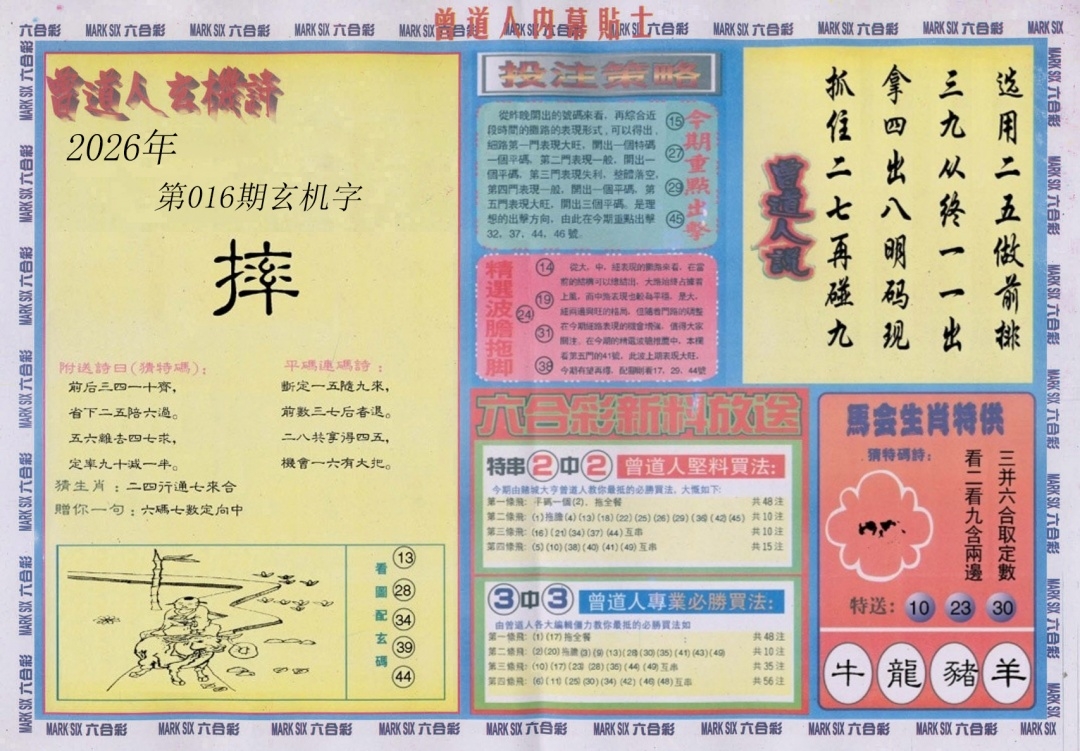 曾道人内幕貼士
曾道人玄機詩
2026年
第016期玄机字
摔
附送詩曰(猜特碼)：
前后三四一十齊，
省下二五陪六過。
五六離去四七求，
定率九十减一半。
平碼連碼詩：
斷定一五隨九來，
前數三七后春退。
二八共享得四五，
機會一六有大把。
猜生肖：二四行通七來合
贈你一句：六碼七數定向中
看圖配玄碼
13
28
34
39
44
投注策略
從昨晚開出的號碼來看，再綜合近
段時間的攤路的表現形式，可以得出，
細路第一門表現大旺，開出一個特碼
一個平碼，第二門表現一般，開出一
個平碼，第三門表現失利，整體落空，
第四門表現一般，開出一個平碼，第
五門表現大旺，開出三個平碼，是理
想的出擊方向，由此在今期重點出擊
32，37，44，46 號。
今期重點出擊
15
27
29
45
精選波膽拖脚
14
19
24
31
38
上風，而中路表現也較為平穩，是大、
看第五門的41號，此波上期表現大旺，
今期有望再標，配腳則看17、29、44號
曾道人說
选用二五做前排
三九从终一一出
拿四出八明码现
抓住二七再碰九
六合彩新料放送
特串2中2 曾道人堅料買法：
今期由賭城大亨曾道人教你最抵的必勝買法，大慨如下：
第一條飛：平碼一個(2)，拖全餐 共48注
第二條飛：(1)拖膽(4)(13)(18)(22)(25)(26)(29)(36)(42)(45) 共10注
第三條飛：(16)(21)(34)(37)(44)互串 共10注
第四條飛：(5)(10)(38)(40)(41)(49)互串 共15注
3中3 曾道人專業必勝買法：
由曾道人各大編輯僵力教你最抵的必勝買法如
第一條飛：(1)(17)拖全餐 共48注
第二條飛：(2)(20)拖膽(3)(9)(13)(28)(30)(35)(41)(43)(49) 共10注
第三條飛：(10)(17)(23)(28)(35)(44)(49)互串 共35注
第四條飛：(6)(11)(25)(30)(34)(42)(46)(48)互串 共56注
馬会生肖特供
猜特碼詩：
三并六合取定數
看二看九含兩邊
特送：10 23 30
牛 龍 豬 羊
MARK SIX 六合彩